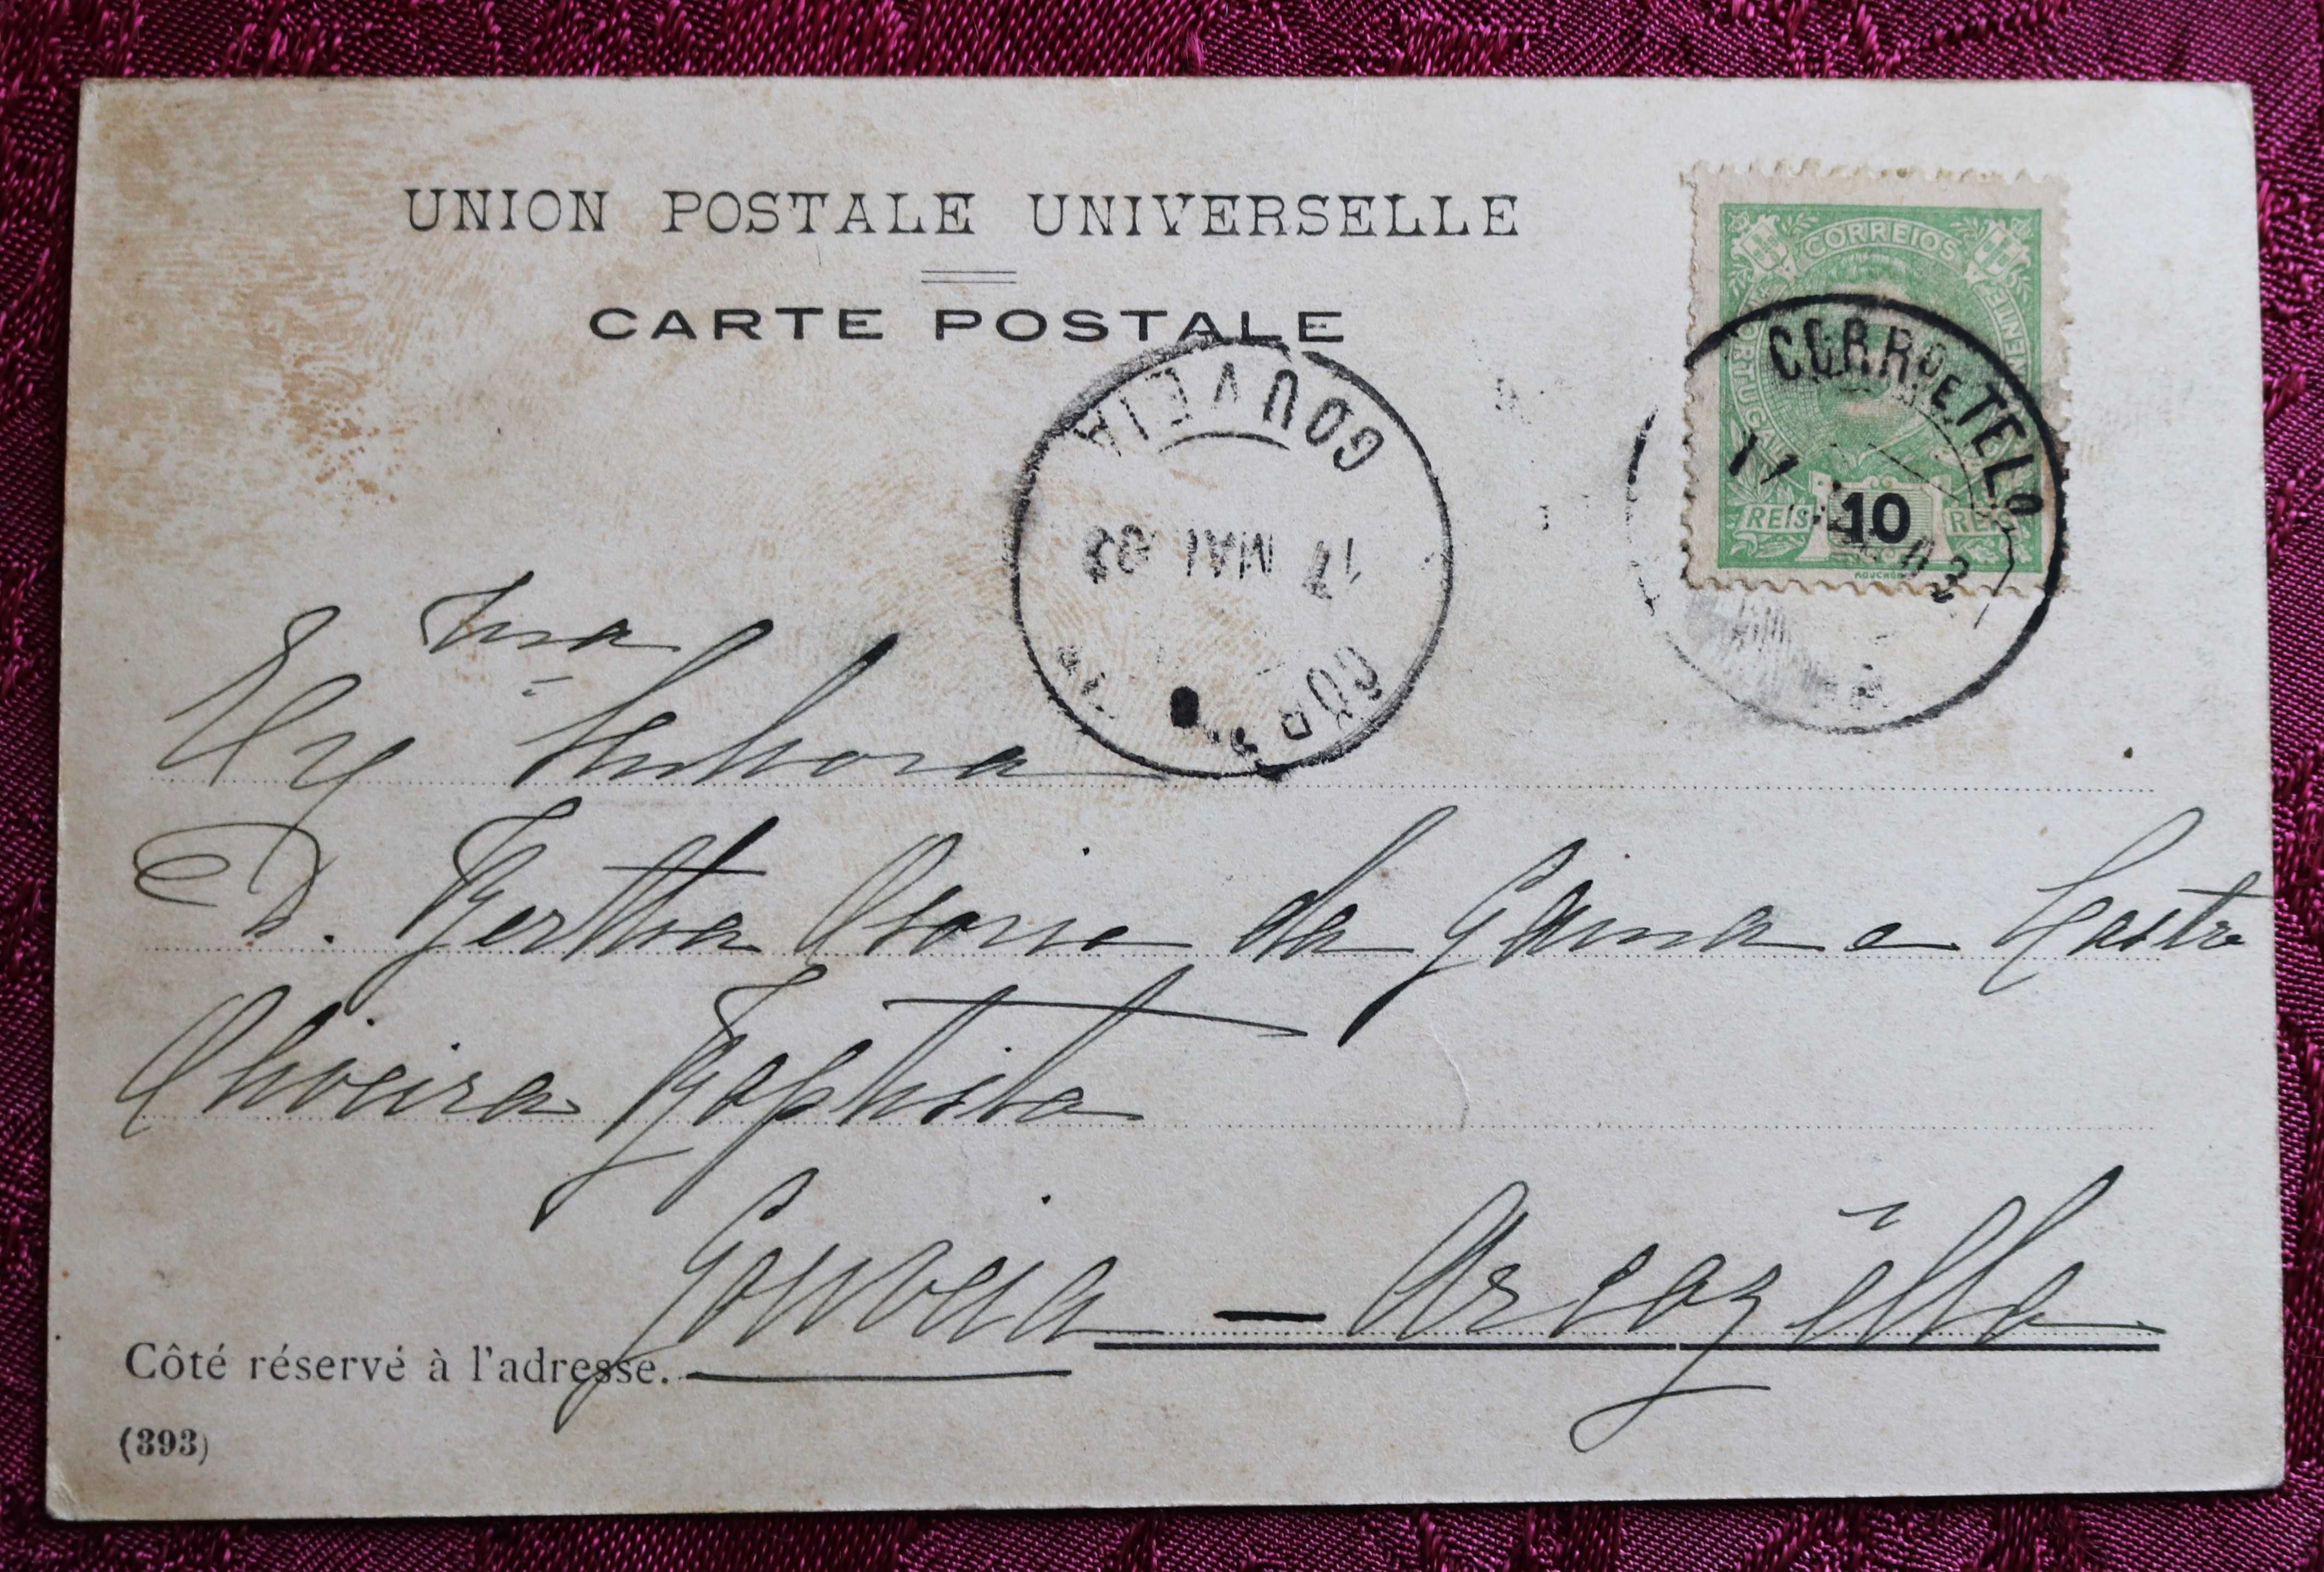 UNION POSTALE UNIVERSELLE
CARTE POSTALE
CORREIOS
PORTUGAL CONTINENTE
REIS 10 REIS
MOUCHON
CORRº E TELº
11 03
GOUVEIA
17 MAI 03
COR
Exma Senhora
D. Bertha Osorio da Gama e Castro
Oliveira Baptista
Gouveia — Arcozêllo
Côté réservé à l'adresse.
(393)